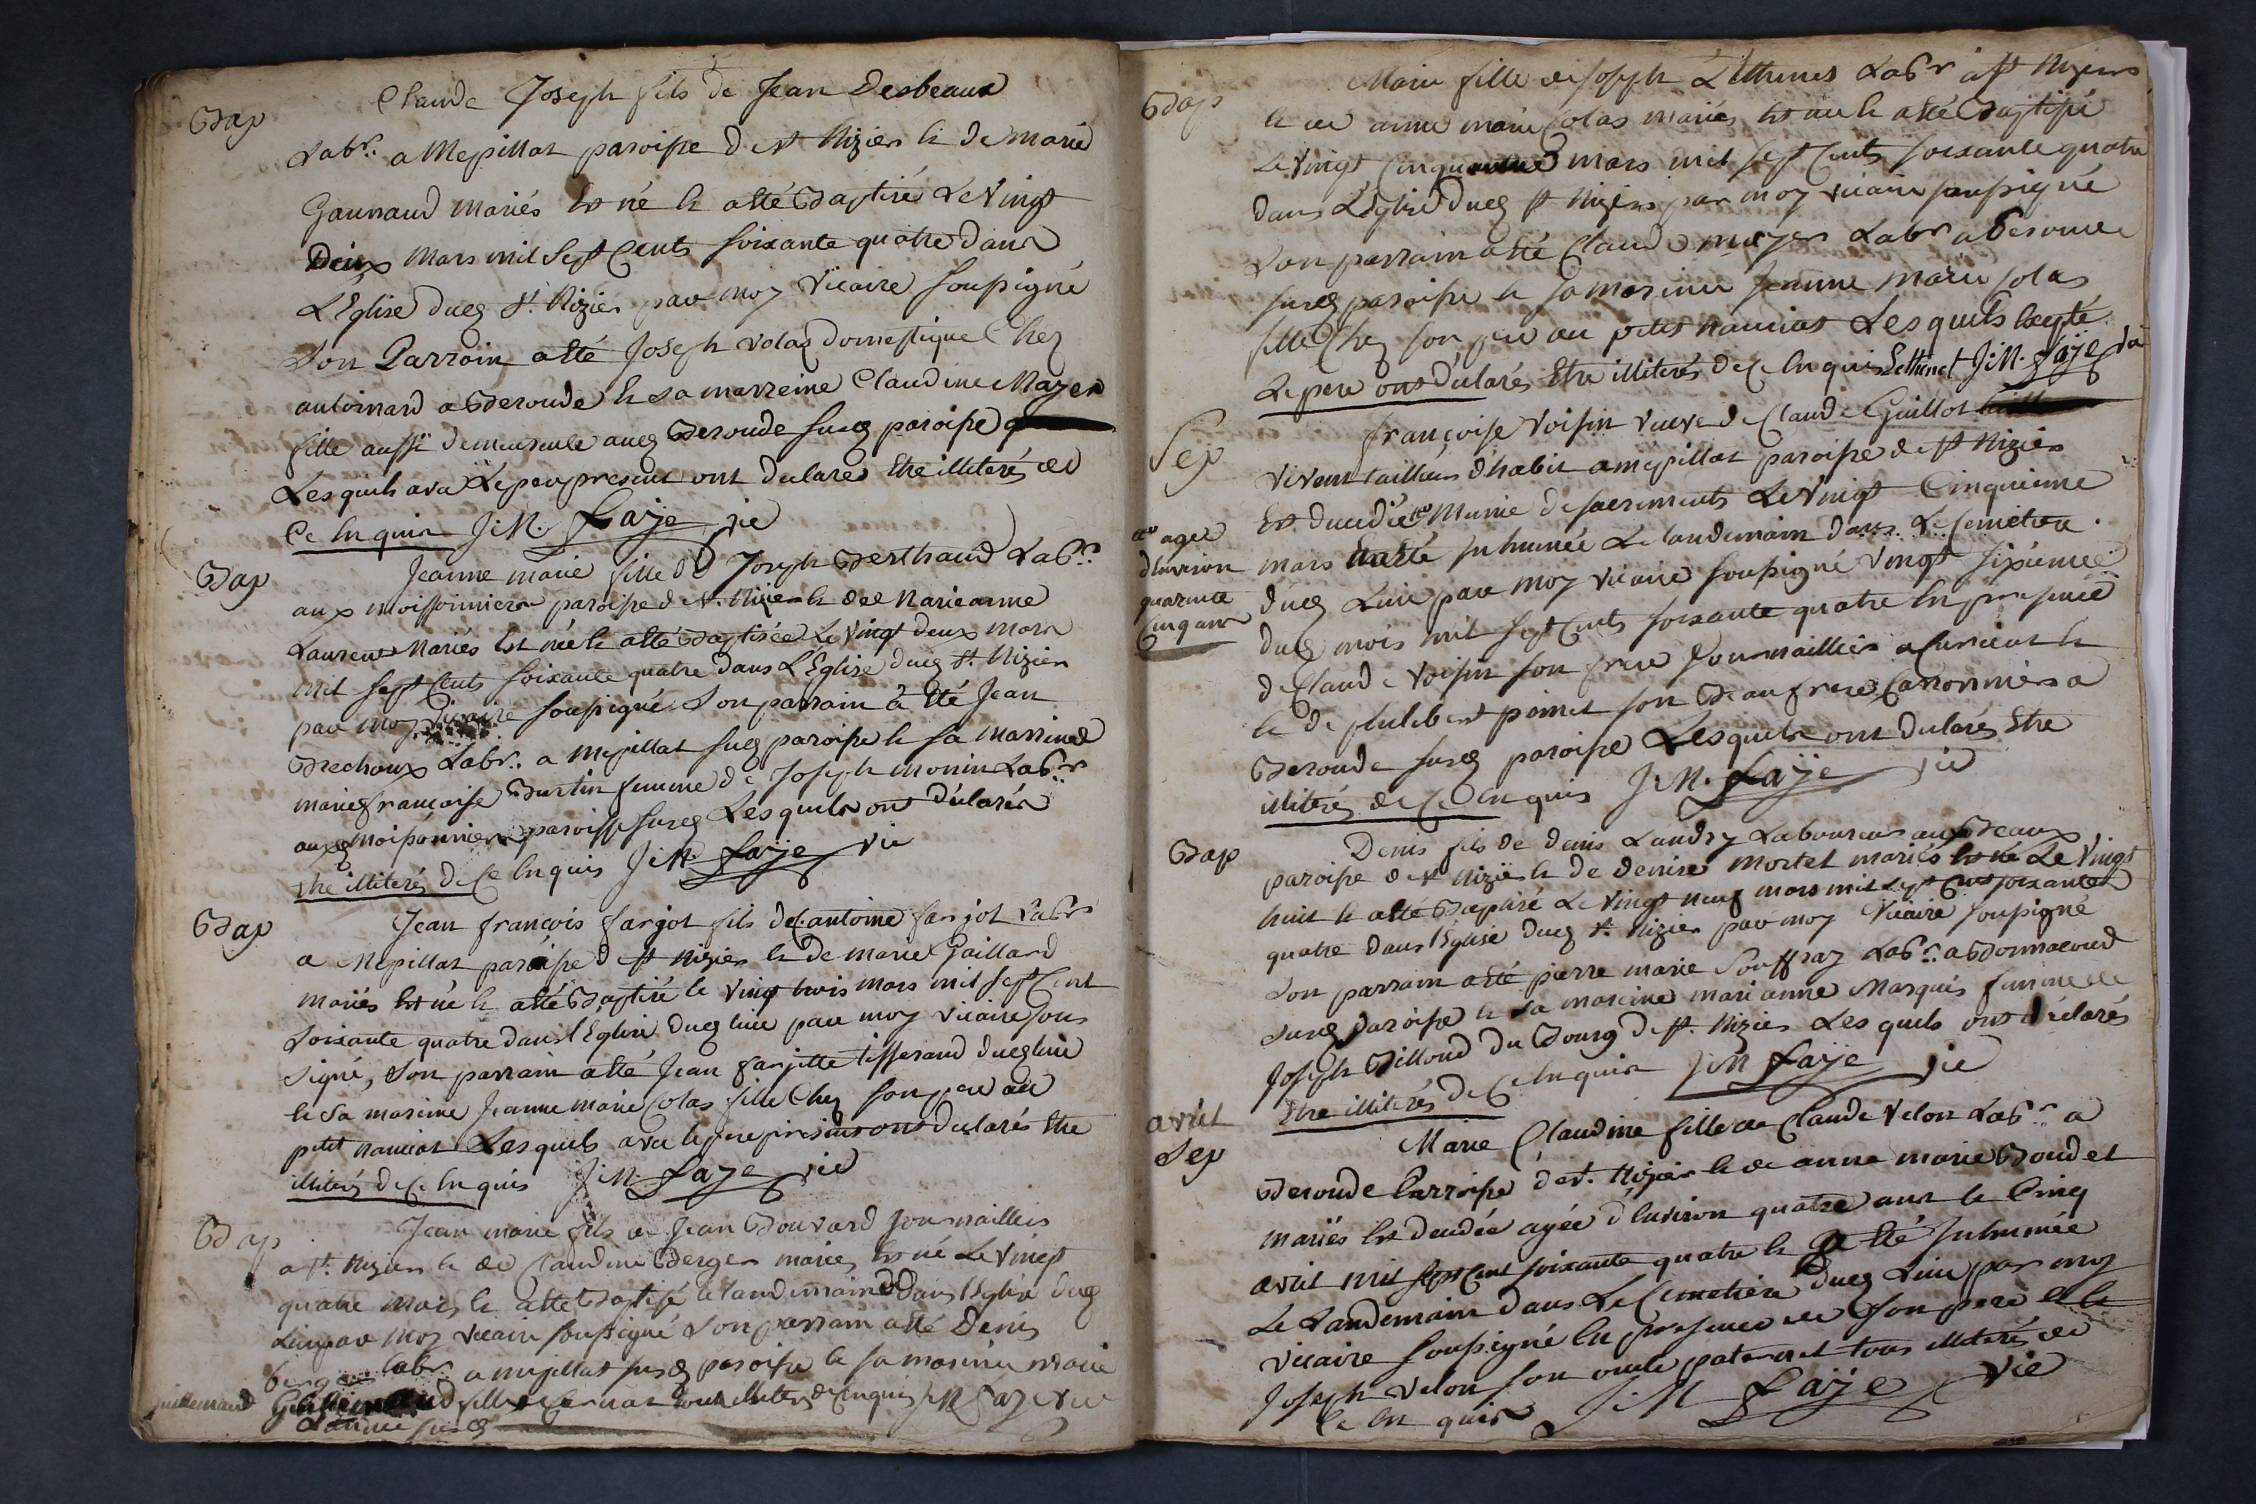 Bap
Claude Joseph fils de Jean Desbeaux
Labr. a Mepillat paroisse de st Nizier & de marie
Gaunaud mariés Est né & a été Baptisé Le Vingt
Deux Mars mil Sept Cents soixante quatre dans
L'Eglise dudg st. Nizier par moy Vicaire soussigné
Son Parrain a été Joseph volaz domestique Chez
antoinard a Beroude & sa marreine Claudine Mayer
fille aussi demeurente audg Beroude susdg paroisse
Lesquels avec Le pere present ont declarés Etre illiterés de
Ce Enquis J. M. Faje vic
Bap
Jeanne marie fille de Joseph Berthaud Labr.
aux moissonniers paroisse de st. Nizier & de Marie anne
Laurent Mariés Est née & a été Baptisée Le Vingt deux mars
mil sept Cents soixante quatre dans L'Eglise dudg st. Nizier
par moy Vicaire soussigné Son parrain à été Jean
Brechoux Labr. a Mepillat susdg paroisse & sa marrine
marie françoise Burtin femme de Joseph monin Labr
auxdg moissonniers paroisse susdg Lesquels ont déclarés
Etre illiterés de Ce Enquis J. M. Faje vic
Bap
Jean francois farjot fils de C. antoine farjot Labr
a Mepillat paroisse de st Nizier & de marie Gaillard
mariés Est né & a été Baptisé le vingt trois mars mil sept Cent
Soixante quatre dans l'Eglise dudg lieu par moy vicaire sous
signé, Son parrain a été Jean farjotte tisserand dudg lieu
& sa marine Jeanne marie Colas fille Chez son pere au
petit nanciat Lesquels avec le pere present ont declarés Etre
illiterés de Ce Enquis J. M. Faje vic
Bap
Jean marie fils de Jean Bouvard journaillier
a st. Nizier & de Claudine Berger mariés Est né Le Vingt
quatre mars & a été Baptisé le landemain dans l'Eglise dudg
Lieu par moy vicaire soussigné Son parrain a été Denis
berger labr. a mepillat susdg paroisse & sa marine marie
guillemaud fille de tous illiterés de Ce Enquis J. M. Faje vic
susdg
Bap
Marie fille de Joseph L'Ethenet Labr a st Nizier
& de anne marie Colas mariés Est née & a été Baptisée
Le Vingt Cinq mars mil sept Cents soixante quatre
dans L'Eglise dudg st Nizier par moy vicaire soussigné
Son parrain a été Claude mayer Labr a beroude
susdg paroisse & sa marine Jeanne marie Colas
fille Chez son pere au petit nanciat Lesquels Excepté
Le pere ont déclarés Etre illiterés de Ce Enquis Lethenet J. M. Faje vic
Sep
françoise Voisin vueve de Claude Guillot
vivent tailleur d'habit a mepillat paroisse de st Nizier
Est décédée Munie de sacrements Le Vingt Cinquieme
agée
d'Environ
quarente
Cinq ans
mars & a été inhumée Le landemain dans Le Cemetiere
dudg Lieu par moy vicaire soussigné vingt sixieme
dudg mois mil sept Cents soixante quatre En presence
de Claude Voisin son frere journaillier a Curciat &
& de philibert pomet son Beaufrere Cantonnier a
Beroude susdg paroisse Lesquels ont declarés Etre
illiterés de Ce Enquis J. M. Faje vic
Bap
Denis fils de denis Landry Laboureur aux Beaux
paroisse de st Nizier & de denise mortet mariés Est né Le Vingt
huit & a été Baptisé Le Vingt neuf mars mil sept Cent soixante
quatre dans l'Eglise dudg st. Nizier par moy Vicaire soussigné
Son parrain a été pierre marie Souffray Labr. a Bonnacoud
susdg paroisse & sa mareine marianne Marquis femme de
Joseph Billoud du Bourg de st. Nizier Lesquels ont déclarés
Etre illiterés de Ce Enquis J. M Faje vic
avril
Sep
Marie Claudine fille de Claude Velon Labr. a
Beroude Parroisse de st. Nizier & de anne marie Boudet
mariés Est décédée agée d'Environ quatre ans le Cinq
avril mil sept Cent soixante quatre & a été Inhumée
Le Landemain dans Le Cemetiere dudg Lieu par moy
vicaire soussigné En presence de son pere & le
Joseph velon son oncle paternel tous illiterés de
Ce Enquis J. M Faje vic